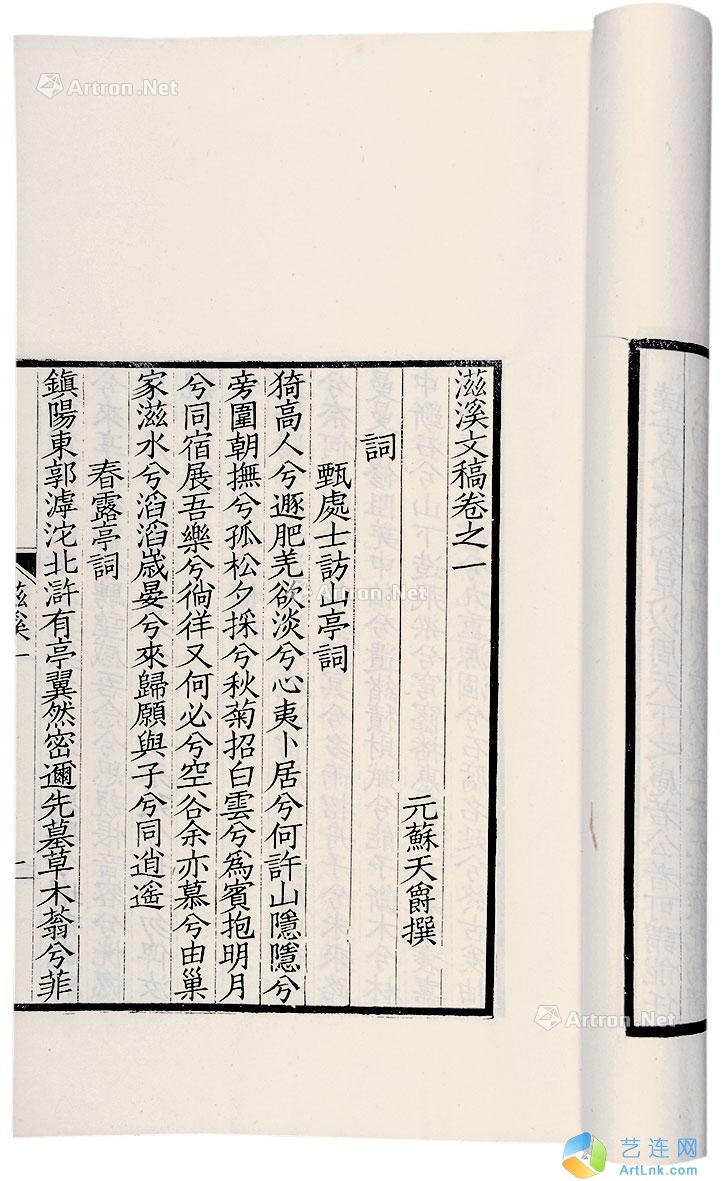 滋溪文稿卷之一
元蘇天爵撰
詞
甄處士訪山亭詞
猗高人兮遯肥羌欲淡兮心夷卜居兮何許山隱隱兮
旁圍朝撫兮孤松夕採兮秋菊招白雲兮爲賓抱明月
兮同宿展吾樂兮徜徉又何必兮空谷余亦慕兮由巢
家滋水兮滔滔歲晏兮來歸願與子兮同逍遙
春露亭詞
鎮陽東郭滹沱北滸有亭翼然密邇先墓草木蓊兮菲
滋溪一
二
Artron.Net
Artron.Net
Artron.Net
艺连网
ArtLnk.com